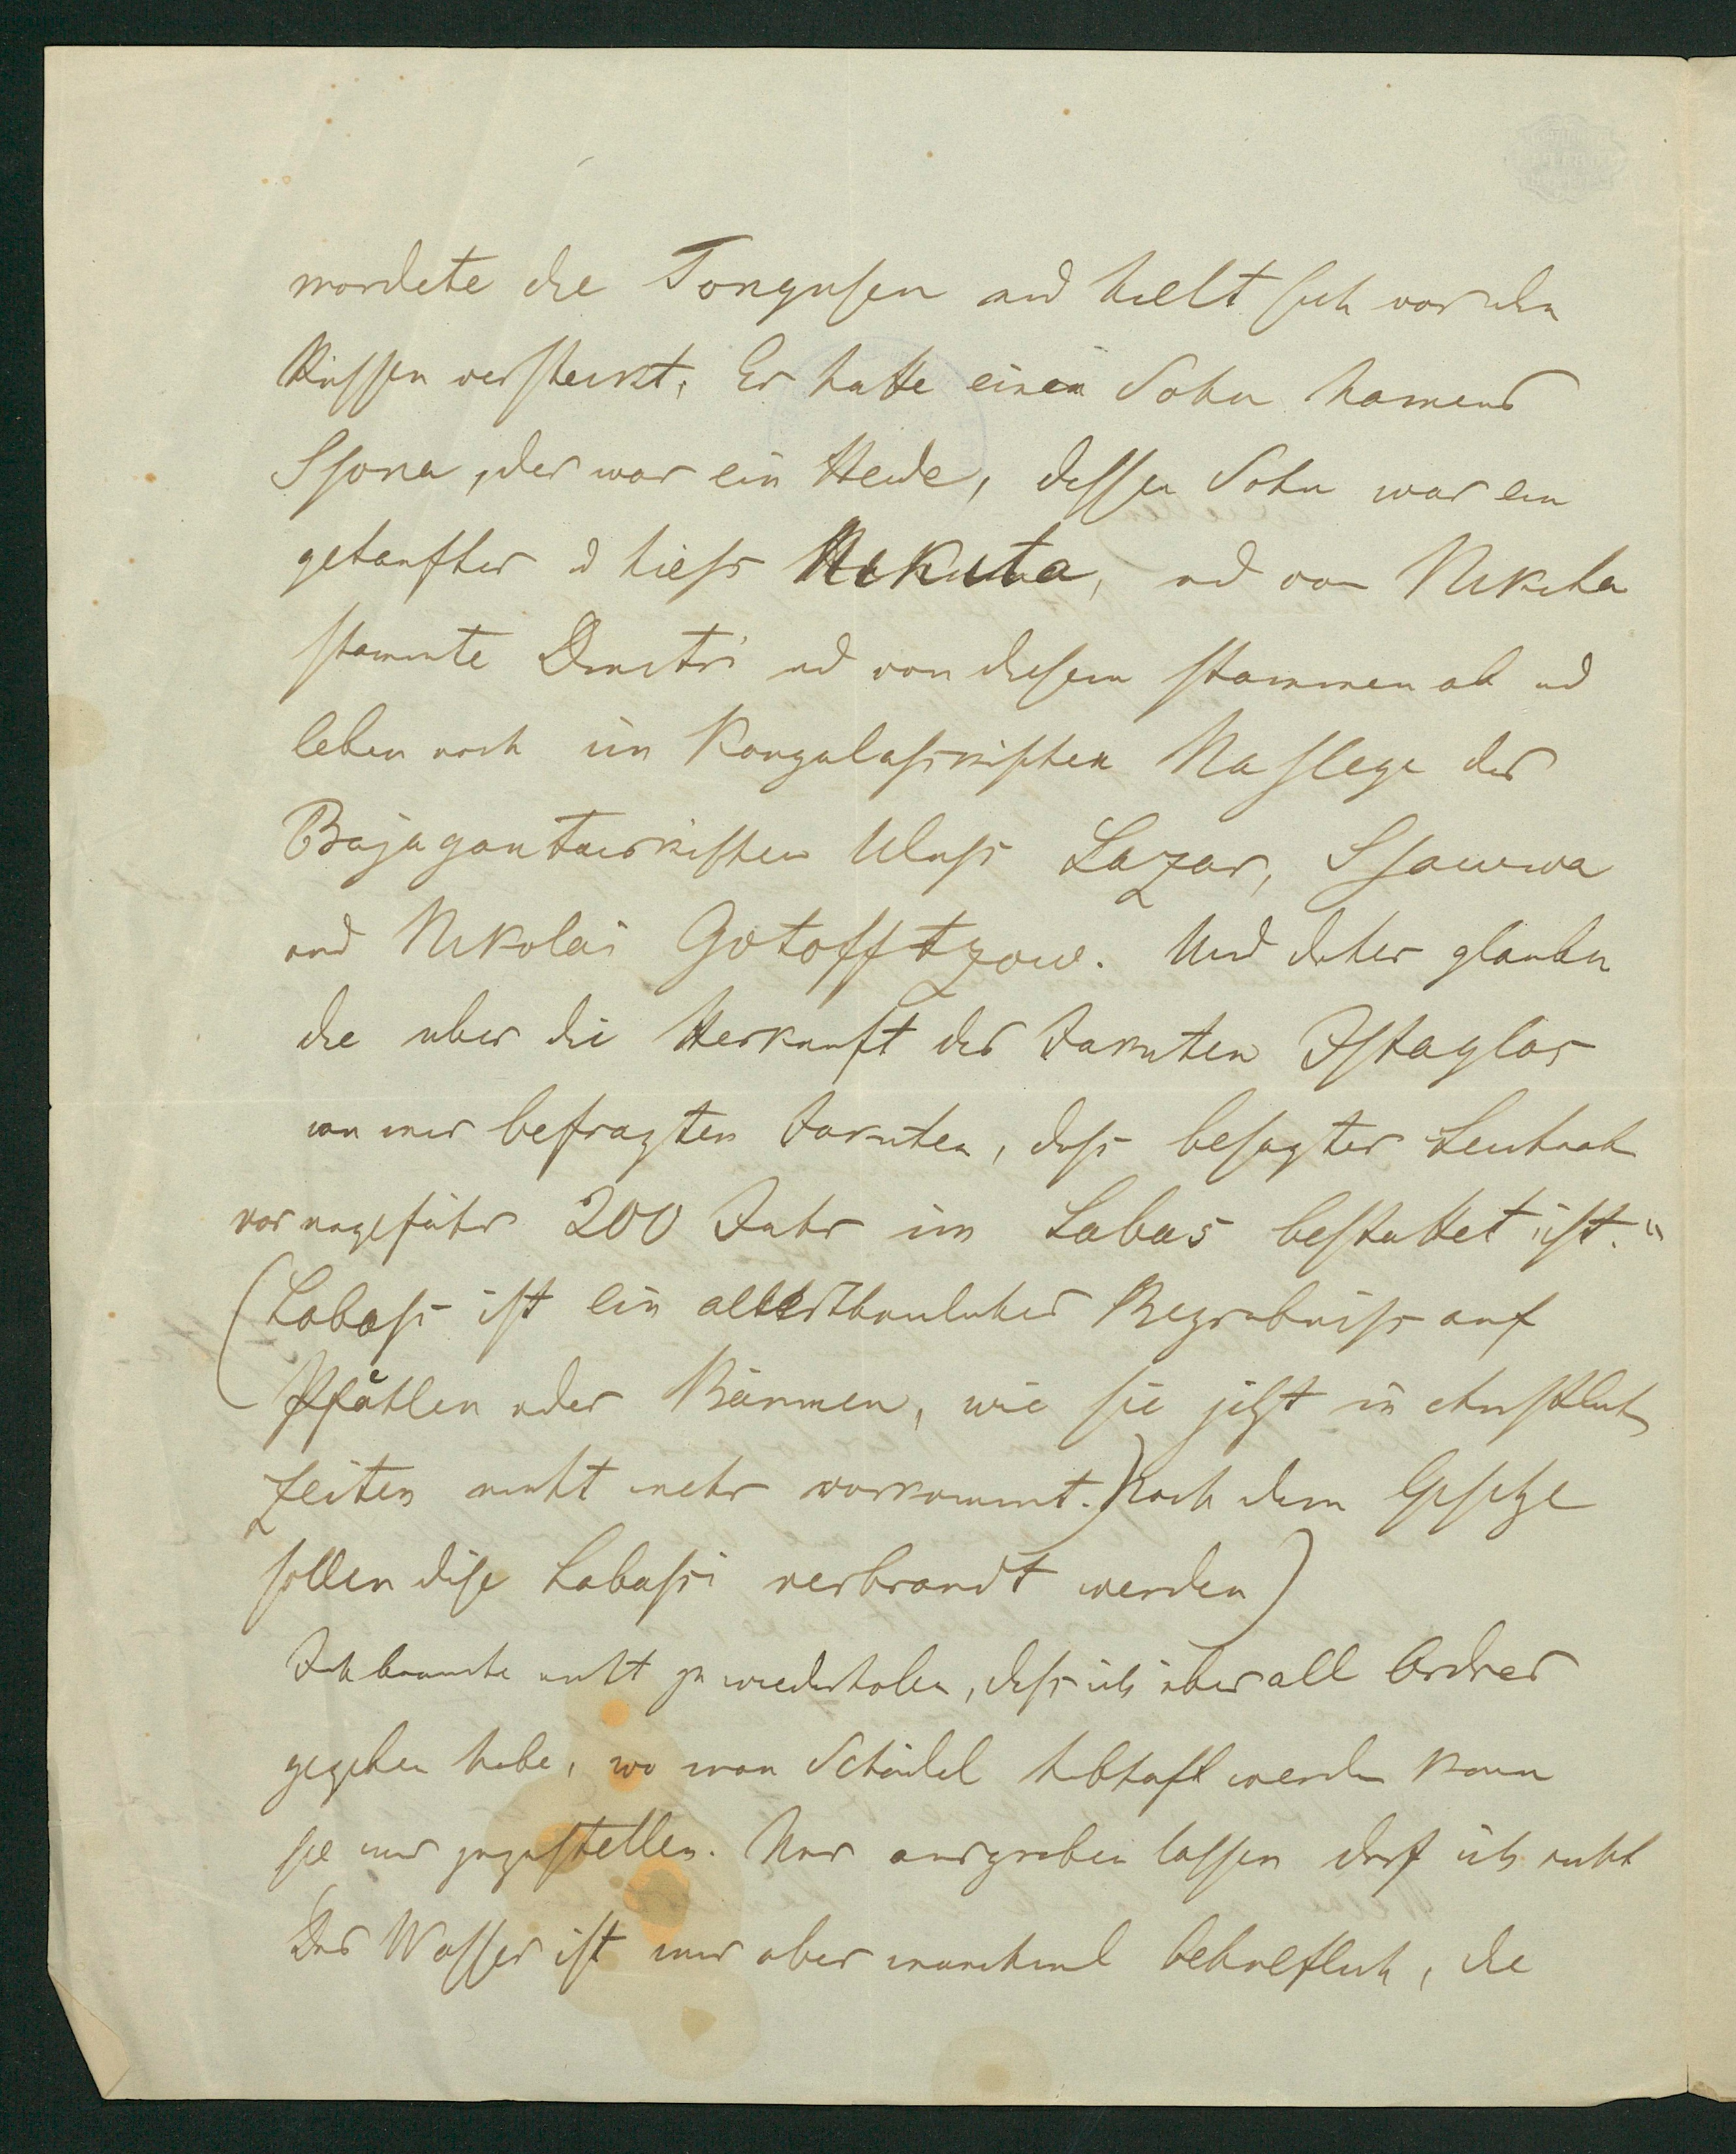 mordete die Tongusen und hielt sich vor den
Russen versteckt. Er hatte einen Sohn Namens
Ssora, der war ein Heide, dessen Sohn war ein
getaufter u hiess Nikita, und von Nikita
stammte Dmitri und von diesem stammen ab und
leben noch im Kangalasskischen Naslege des
Bajagantaiskischen Uluss Lazar, Ssawwa
und Nikolai Gotofftzow. Und daher glauben
die über die Herkunft des Jakuten Istaglas
von mir befragten Jakuten, dass besagter Leichnam
vor ungefähr 200 Jahr im Labas bestattet ist."
(Labass ist ein alterthümlicher Begräbniss auf
Pfählen oder Bäumen, wie sie jetzt in christlich
Zeiten nicht mehr vorkommt.) Nach dem Gesetze
sollen diese Labassi verbrandt werden)
Ich brauche nicht zu wiederholen, dass ich überall Ordres
gegeben habe, wo man Schädel habhaft werden kann
sie mir zuzustellen. Nur ausgraben lassen darf ich nicht
Das Wasser ist mir aber manchmal behülflich, die